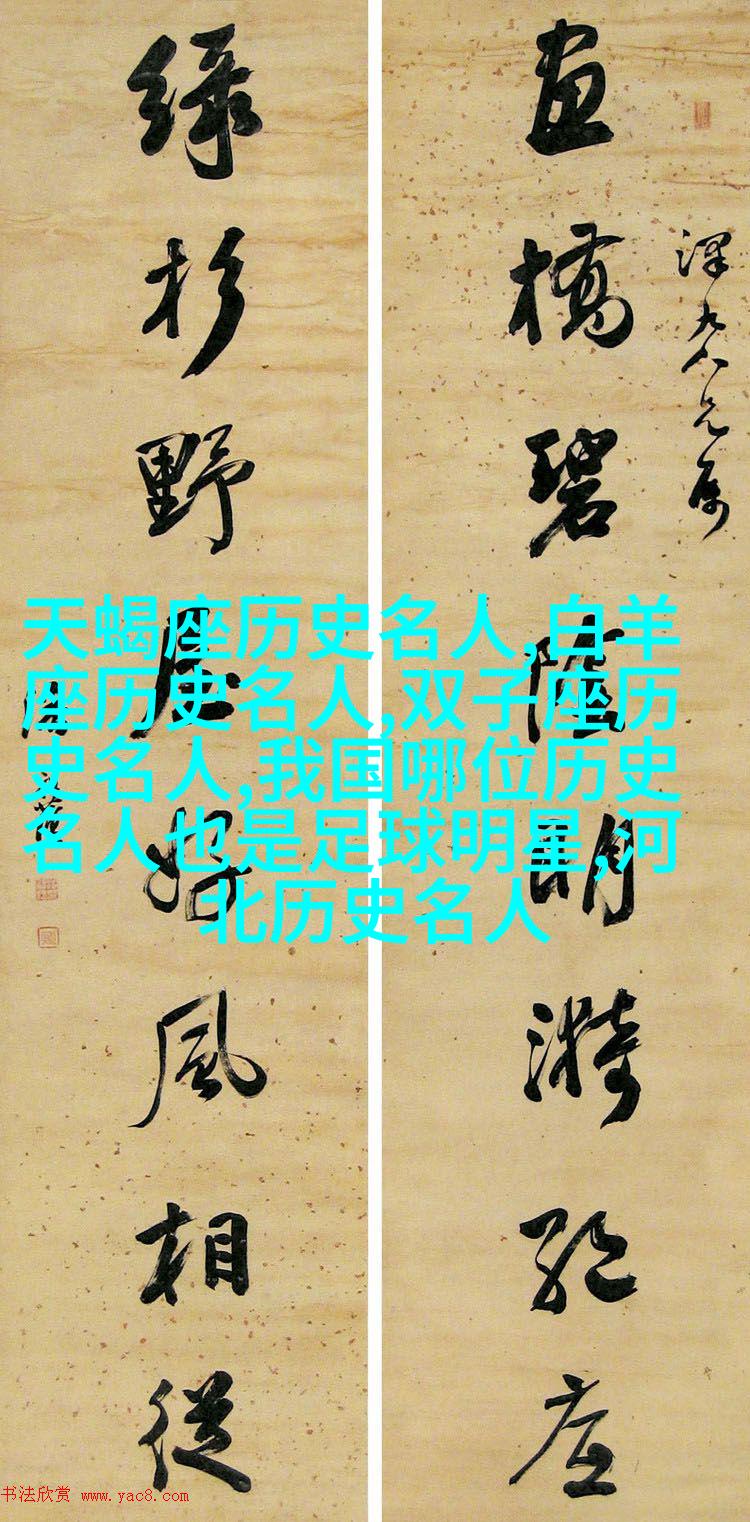 畫橋碧陰明漪絕底
綠杉野屋好風相從
天蝎座历史名人,白羊
座历史名人,双子座历
史名人,我国哪位历史
名人也是足球明星,河
北历史名人
书法欣赏 www.yac8.com